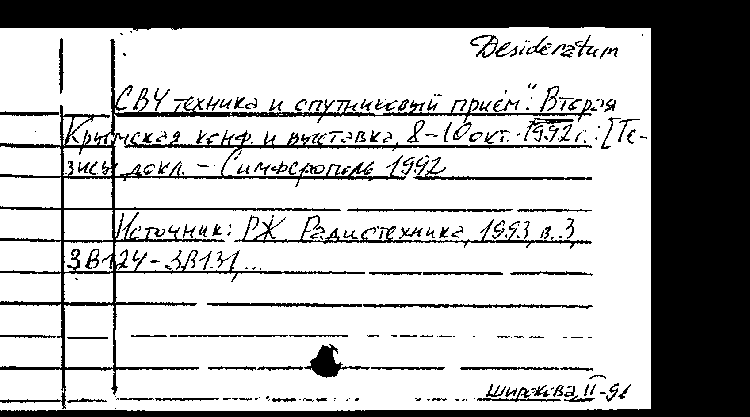 Desideratum
„СВЧ техника и спутниковый приём". Вторая
Крымская конф. и выставка, 8-10 окт. 1992 г.: [Те-
зисы докл. – Симферополь, 1992
Источник: РЖ Радиотехника, 1993, в. 3,
3В124-3В131,...
Широкова, II-96